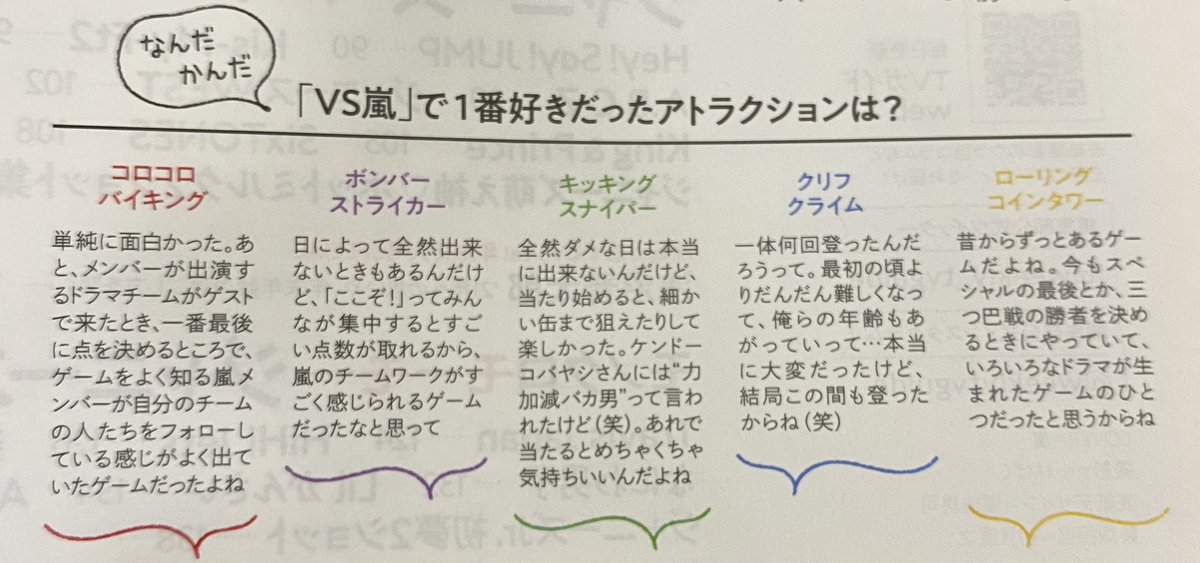 なんだ
かんだ
「VS嵐」で1番好きだったアトラクションは?
コロコロ
バイキング
単純に面白かった。あ
と、メンバーが出演す
るドラマチームがゲスト
で来たとき、一番最後
に点を決めるところで、
ゲームをよく知る嵐メ
ンバーが自分のチーム
の人たちをフォローし
ている感じがよく出て
いたゲームだったよね
ボンバー
ストライカー
日によって全然出来
ないときもあるんだけ
ど、「ここぞ!」ってみん
なが集中するとすご
い点数が取れるから、
嵐のチームワークがす
ごく感じられるゲーム
だったなと思って
キッキング
スナイパー
全然ダメな日は本当
に出来ないんだけど、
当たり始めると、細か
い缶まで狙えたりして
楽しかった。ケンドー
コバヤシさんには“力
加減バカ男”って言わ
れたけど(笑)。あれで
当たるとめちゃくちゃ
気持ちいいんだよね
クリフ
クライム
一体何回登ったんだ
ろうって。最初の頃よ
りだんだん難しくなっ
て、俺らの年齢もあ
がっていって…本当
に大変だったけど、
結局この間も登った
からね(笑)
ローリング
コインタワー
昔からずっとあるゲー
ムだよね。今もスペ
シャルの最後とか、三
つ巴戦の勝者を決め
るときにやっていて、
いろいろなドラマが生
まれたゲームのひと
つだったと思うからね